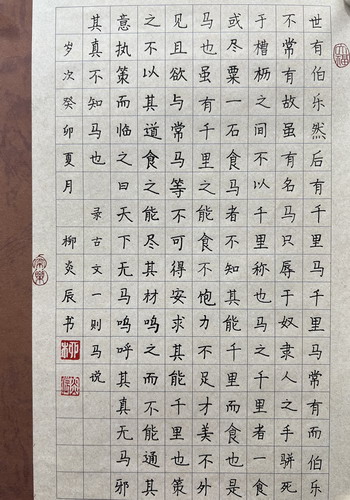 世有伯乐然后有千里马千里马常有而伯乐
不常有故虽有名马只辱于奴隶人之手骈死
于槽枥之间不以千里称也马之千里者一食
或尽粟一石食马者不知其能千里而食也是
马也虽有千里之能食不饱力不足才美不外
见且欲与常马等不可得安求其能千里也策
之不以其道食之能尽其材鸣之而不能通其
意执策而临之曰天下无马呜呼其真无马邪
其真不知马也 录古文一则马说
岁次癸卯夏月 柳炎辰书
柳